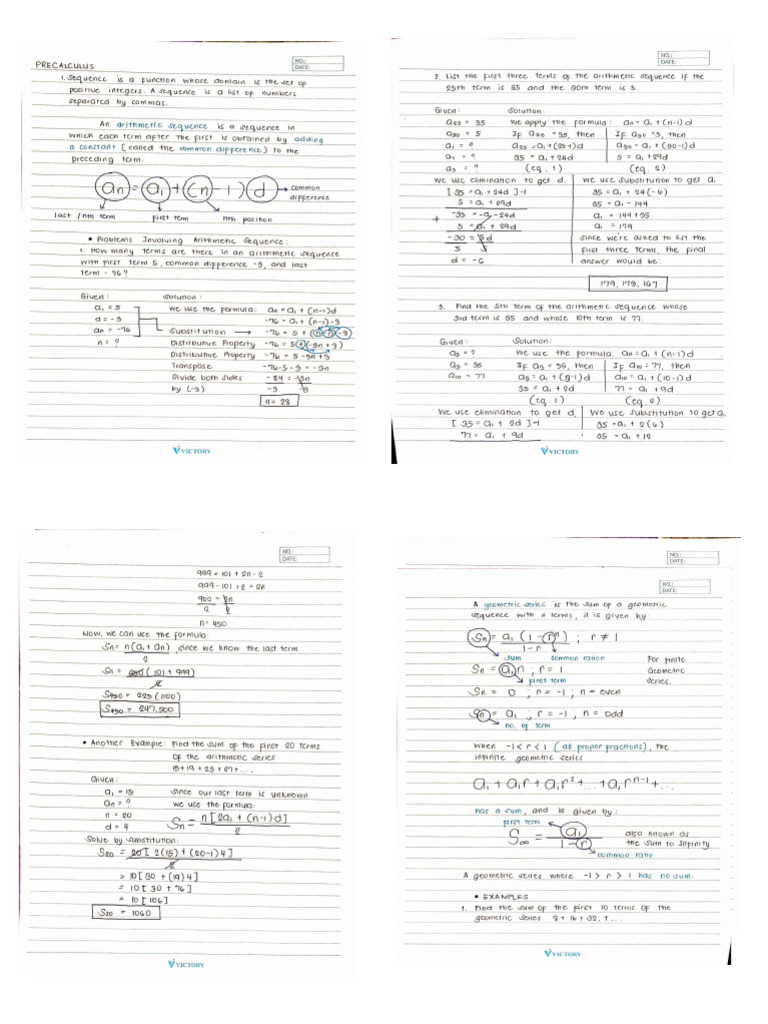 NO.:
DATE:
PRECALCULUS
1. Sequence is a function whose domain is the set of
positive integers. A sequence is a list of numbers
separated by commas.
An arithmetic sequence is a sequence in
which each term after the first is obtained by adding
a constant (called the common difference) to the
preceding term.
an = a1 + (n - 1) d
common
difference
last / nth term first term nth position
• Problems Involving Arithmetic Sequence:
1. How many terms are there in an arithmetic sequence
with first term 5, common difference -3, and last
term -76?
Given: Solution:
a1 = 5 We use the formula: an = a1 + (n-1)d
d = -3 -76 = a1 + (n-1)-3
an = -76 Substitution → -76 = 5 + (n-1)(-3)
n = ? Distributive Property -76 = 5 + (-3n + 3)
Distributive Property -76 = 5 - 3n + 3
Transpose -76 - 5 - 3 = -3n
Divide both sides -84 = -3n
by (-3) -3 -3
n = 28
VICTORY
NO.:
DATE:
3. List the first three terms of the arithmetic sequence if the
25th term is 35 and the 30th term is 5.
Given: Solution:
a25 = 35 We apply the formula: an = a1 + (n-1)d
a30 = 5 If a25 = 35, then If a30 = 5, then
a1 = ? a25 = a1 + (25-1)d a30 = a1 + (30-1)d
a2 = ? 35 = a1 + 24d 5 = a1 + 29d
a3 = ? (eq. 1) (eq. 2)
We use elimination to get d. We use substitution to get a1
[ 35 = a1 + 24d ] -1 35 = a1 + 24(-6)
5 = a1 + 29d 35 = a1 - 144
+ -35 = -a1 - 24d a1 = 144 + 35
5 = a1 + 29d a1 = 179
-30 = 5d Since we're asked to list the
5 5 first three terms, the final
d = -6 answer would be:
179, 173, 167
3. Find the 5th term of the arithmetic sequence whose
3rd term is 35 and whose 10th term is 77.
Given: Solution:
a5 = ? We use the formula: an = a1 + (n-1)d
a3 = 35 If a3 = 35, then If a10 = 77, then
a10 = 77 a3 = a1 + (3-1)d a10 = a1 + (10-1)d
35 = a1 + 2d 77 = a1 + 9d
(eq. 1) (eq. 2)
We use elimination to get d. We use substitution to get a1
[ 35 = a1 + 2d ] -1 35 = a1 + 2(6)
77 = a1 + 9d 35 = a1 + 12
VICTORY
NO.:
DATE:
999 = 101 + 2n - 2
999 - 101 + 2 = 2n
900 = 2n
2 2
n = 450
Now, we can use the formula:
Sn = n(a1 + an), since we know the last term
2
Sn = 450 (101 + 999)
2
S450 = 225 (1100)
S450 = 247,500
• Another Example: Find the sum of the first 20 terms
of the arithmetic series
15 + 19 + 23 + 27 + ...
Given:
a1 = 15 since our last term is unknown
an = ? we use the formula:
n = 20 Sn = n[2a1 + (n-1)d]
d = 4 2
Solve by substitution:
S20 = 20[2(15) + (20-1)4]
2
= 10[30 + (19)4]
= 10[30 + 76]
= 10[106]
S20 = 1060
VICTORY
NO.:
DATE:
NO.:
DATE:
A geometric series is the sum of a geometric
sequence with n terms, it is given by:
Sn = a1 (1 - rⁿ) ; r ≠ 1
1 - r
sum common ration For finite
Sn = a1n, r = 1 Geometric
first term series.
Sn = 0 ; r = -1 ; n = even
Sn = a1 ; r = -1 , n = odd
no. of term
When -1 < r < 1 (all proper fractions), the
infinite geometric series
a1 + a1r + a1r² + ... + a1rⁿ⁻¹ + ...
has a sum, and is given by:
first term
S∞ = a1 also known as
1 - r the sum to infinity
common ratio
A geometric series where -1 > r > 1 has no sum.
• EXAMPLES
1. Find the sum of the first 10 terms of the
geometric series 8 + 16 + 32, + ...
VICTORY